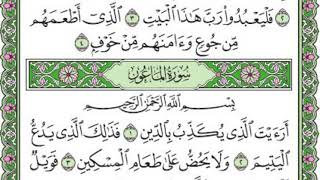 ٢ فَلْيَعْبُدُوا۟ رَبَّ هَٰذَا ٱلْبَيْتِ ٣ ٱلَّذِىٓ أَطْعَمَهُم
مِّن جُوعٍ وَءَامَنَهُم مِّنْ خَوْفٍۭ ٤
سُورَةُ الْمَاعُونِ
بِسْمِ ٱللَّهِ ٱلرَّحْمَٰنِ ٱلرَّحِيمِ
أَرَءَيْتَ ٱلَّذِى يُكَذِّبُ بِٱلدِّينِ ١ فَذَٰلِكَ ٱلَّذِى يَدُعُّ
ٱلْيَتِيمَ ٢ وَلَا يَحُضُّ عَلَىٰ طَعَامِ ٱلْمِسْكِينِ ٣ فَوَيْلٌ